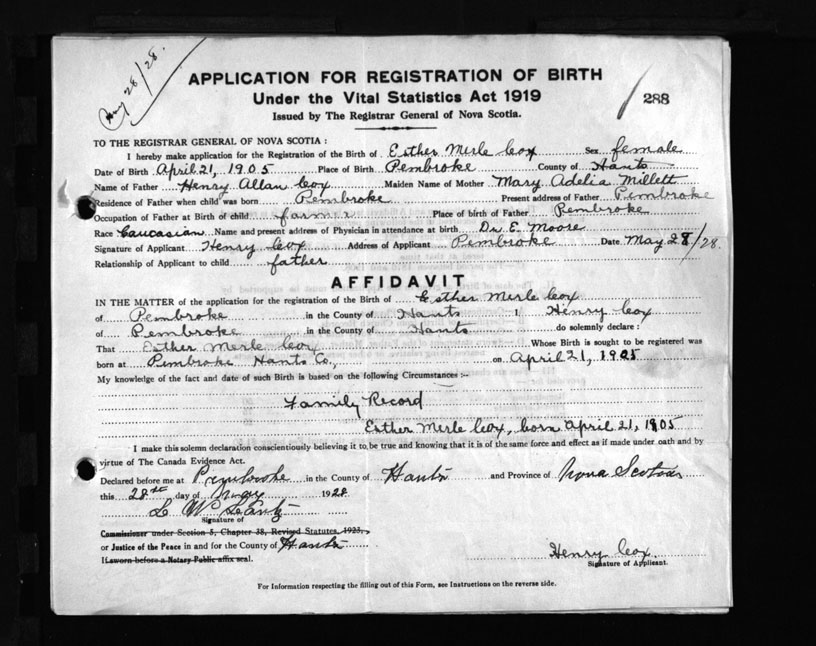 May 28/28.
APPLICATION FOR REGISTRATION OF BIRTH
Under the Vital Statistics Act 1919
288
Issued by The Registrar General of Nova Scotia.
TO THE REGISTRAR GENERAL OF NOVA SCOTIA:
I hereby make application for the Registration of the Birth of Esther Merle Cox Sex female
Date of Birth April 21, 1905 Place of Birth Pembroke County of Hants
Name of Father Henry Allan Cox Maiden Name of Mother Mary Adelia Millett
Residence of Father when child was born Pembroke Present address of Father Pembroke
Occupation of Father at Birth of child farmer Place of birth of Father Pembroke
Race Caucasian Name and present address of Physician in attendance at birth Dr. E. Moore
Signature of Applicant Henry Cox Address of Applicant Pembroke Date May 28/28.
Relationship of Applicant to child father
AFFIDAVIT
IN THE MATTER of the application for the registration of the Birth of Esther Merle Cox
of Pembroke in the County of Hants I, Henry Cox
of Pembroke in the County of Hants do solemnly declare:
That Esther Merle Cox Whose Birth is sought to be registered was
born at Pembroke Hants Co., on April 21, 1905
My knowledge of the fact and date of such Birth is based on the following Circumstances:—
Family Record
Esther Merle Cox, born April 21, 1905
I make this solemn declaration conscientiously believing it to be true and knowing that it is of the same force and effect as if made under oath and by
virtue of The Canada Evidence Act.
Declared before me at Pembroke in the County of Hants and Province of Nova Scotia
this 28th day of May 1928
L W
Signature of
Commissioner under Section 5, Chapter 38, Revised Statutes, 1923,
or Justice of the Peace in and for the County of Hants
If sworn before a Notary Public affix seal.
Henry Cox
Signature of Applicant.
For Information respecting the filling out of this Form, see Instructions on the reverse side.